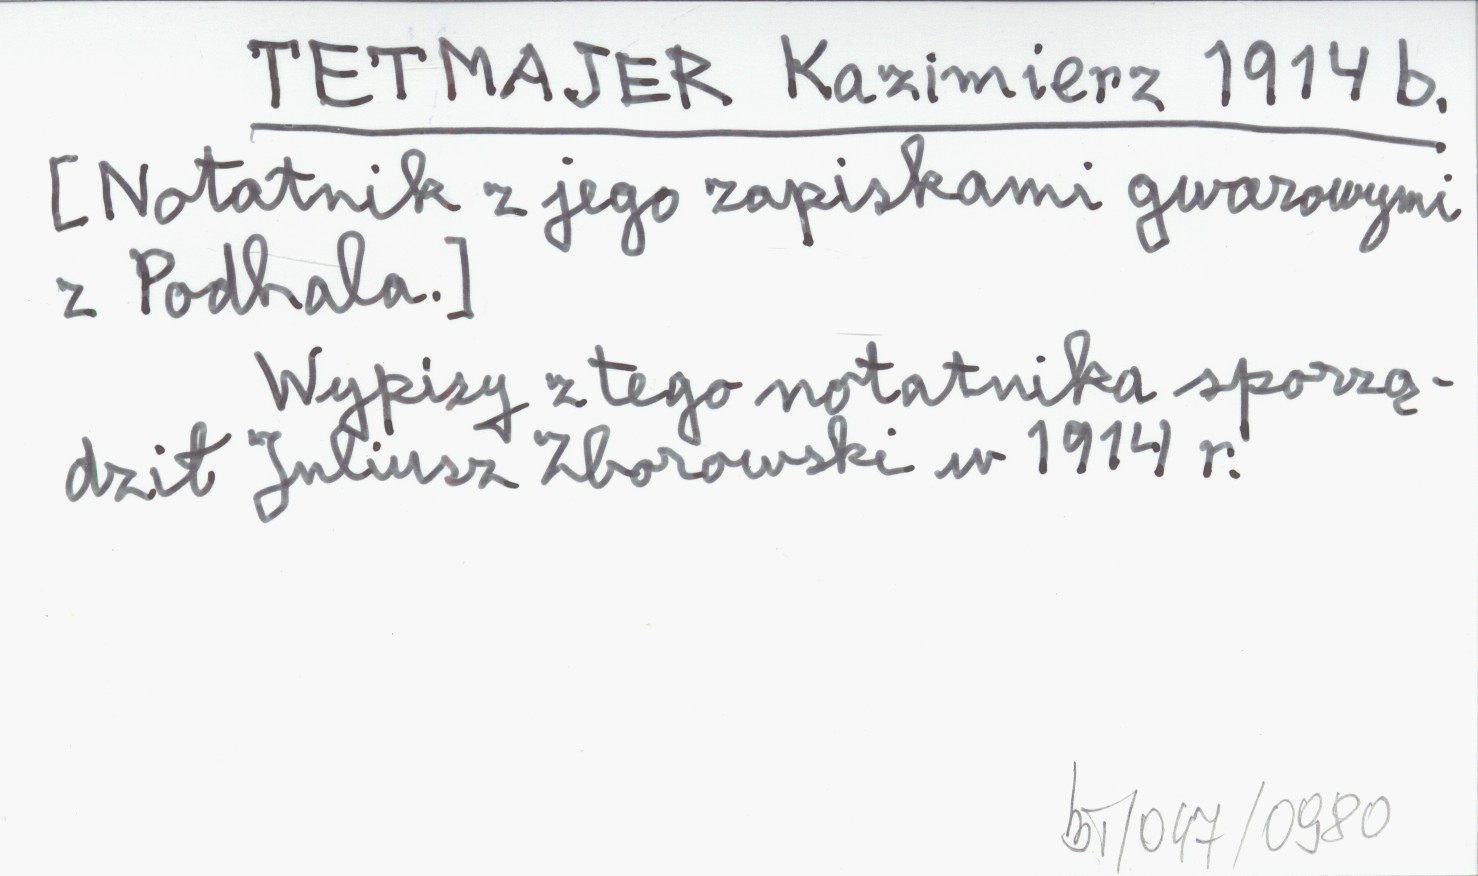 TETMAJER Kazimierz 1914 b.
[Notatnik z jego zapiskami gwarowymi
z Podhala.]
Wypisy z tego notatnika sporzą-
dził Juliusz Zborowski w 1914 r.
bT/047/0980